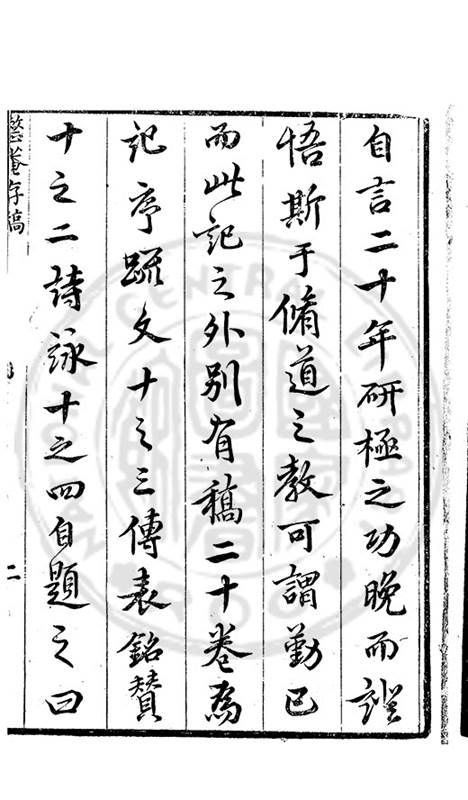 自言二十年研極之功晚而證
悟斯于脩道之教可謂勤已
而此記之外別有稿二十卷為
記序疏文十之三傳表銘贊
十之二詩詠十之四自題之曰
整菴存稿
二